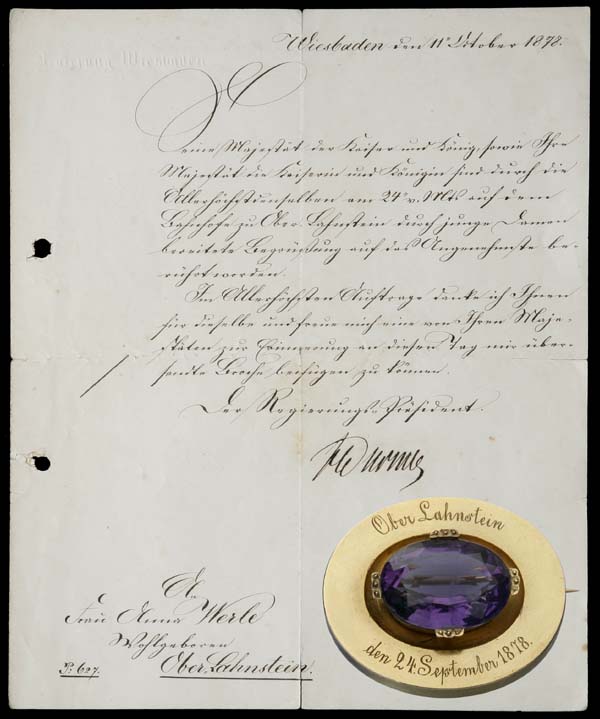 Wiesbaden den 11ⁿ Oktober 1878.
Regierung Wiesbaden
Seine Majestät der Kaiser und König, sowie Ihre
Majestät die Kaiserin und Königin sind durch die
Allerhöchstdenselben am 24ⁿ v. Mts auf dem
Bahnhofe zu Ober Lahnstein durch junge Damen
bereitete Begrüßung auf das Angenehmste be-
rührt worden.
Im Allerhöchsten Auftrage danke ich Ihnen
für dieselbe und freue mich eine von Ihren Maje-
stäten zur Erinnerung an diesen Tag mir über-
sandte Broche beifügen zu können.
Der Regierungs-Präsident.
An
Frau Anna Werle
Wohlgeboren
Ober Lahnstein.
627.
Ober Lahnstein
den 24. September 1878.